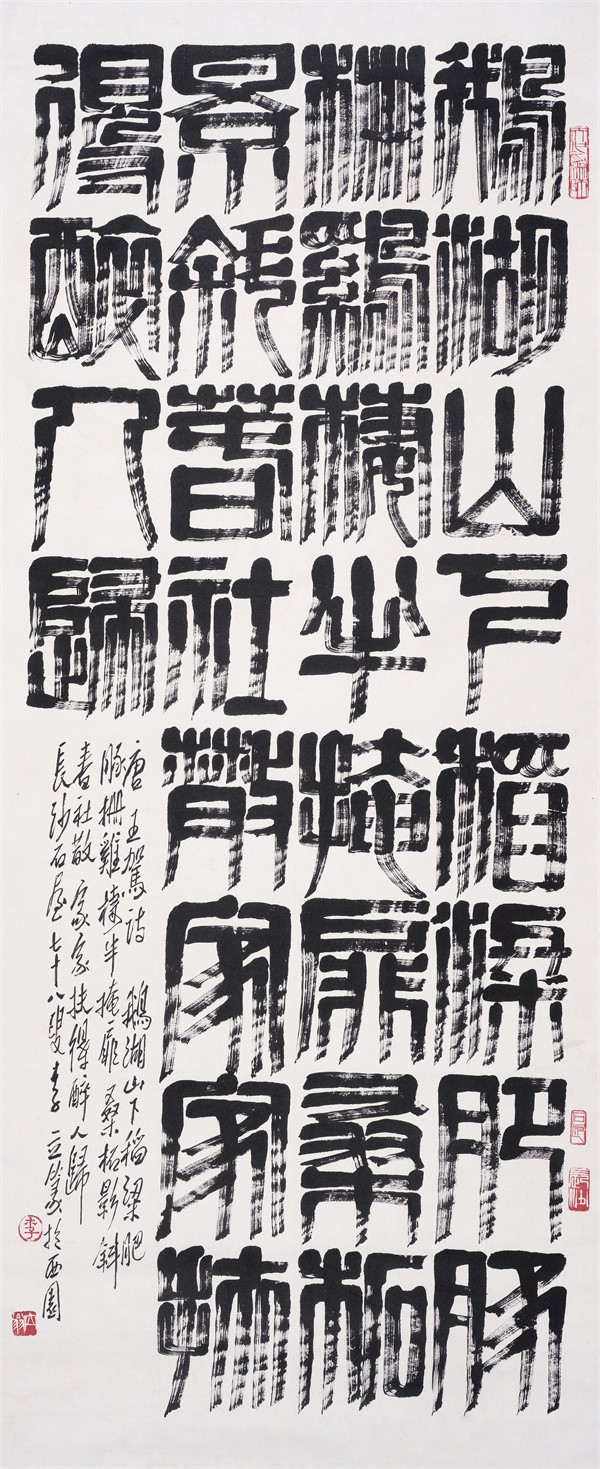 鵝湖山下稻粱肥豚
柵鷄棲半掩扉桑柘
景斜春社散家家扶
得醉人歸
唐王駕詩 鵝湖山下稻粱肥
豚柵雞棲半掩扉桑柘影斜
春社散家家扶得醉人歸
長沙石屋七十八叟李立篆於西園
李